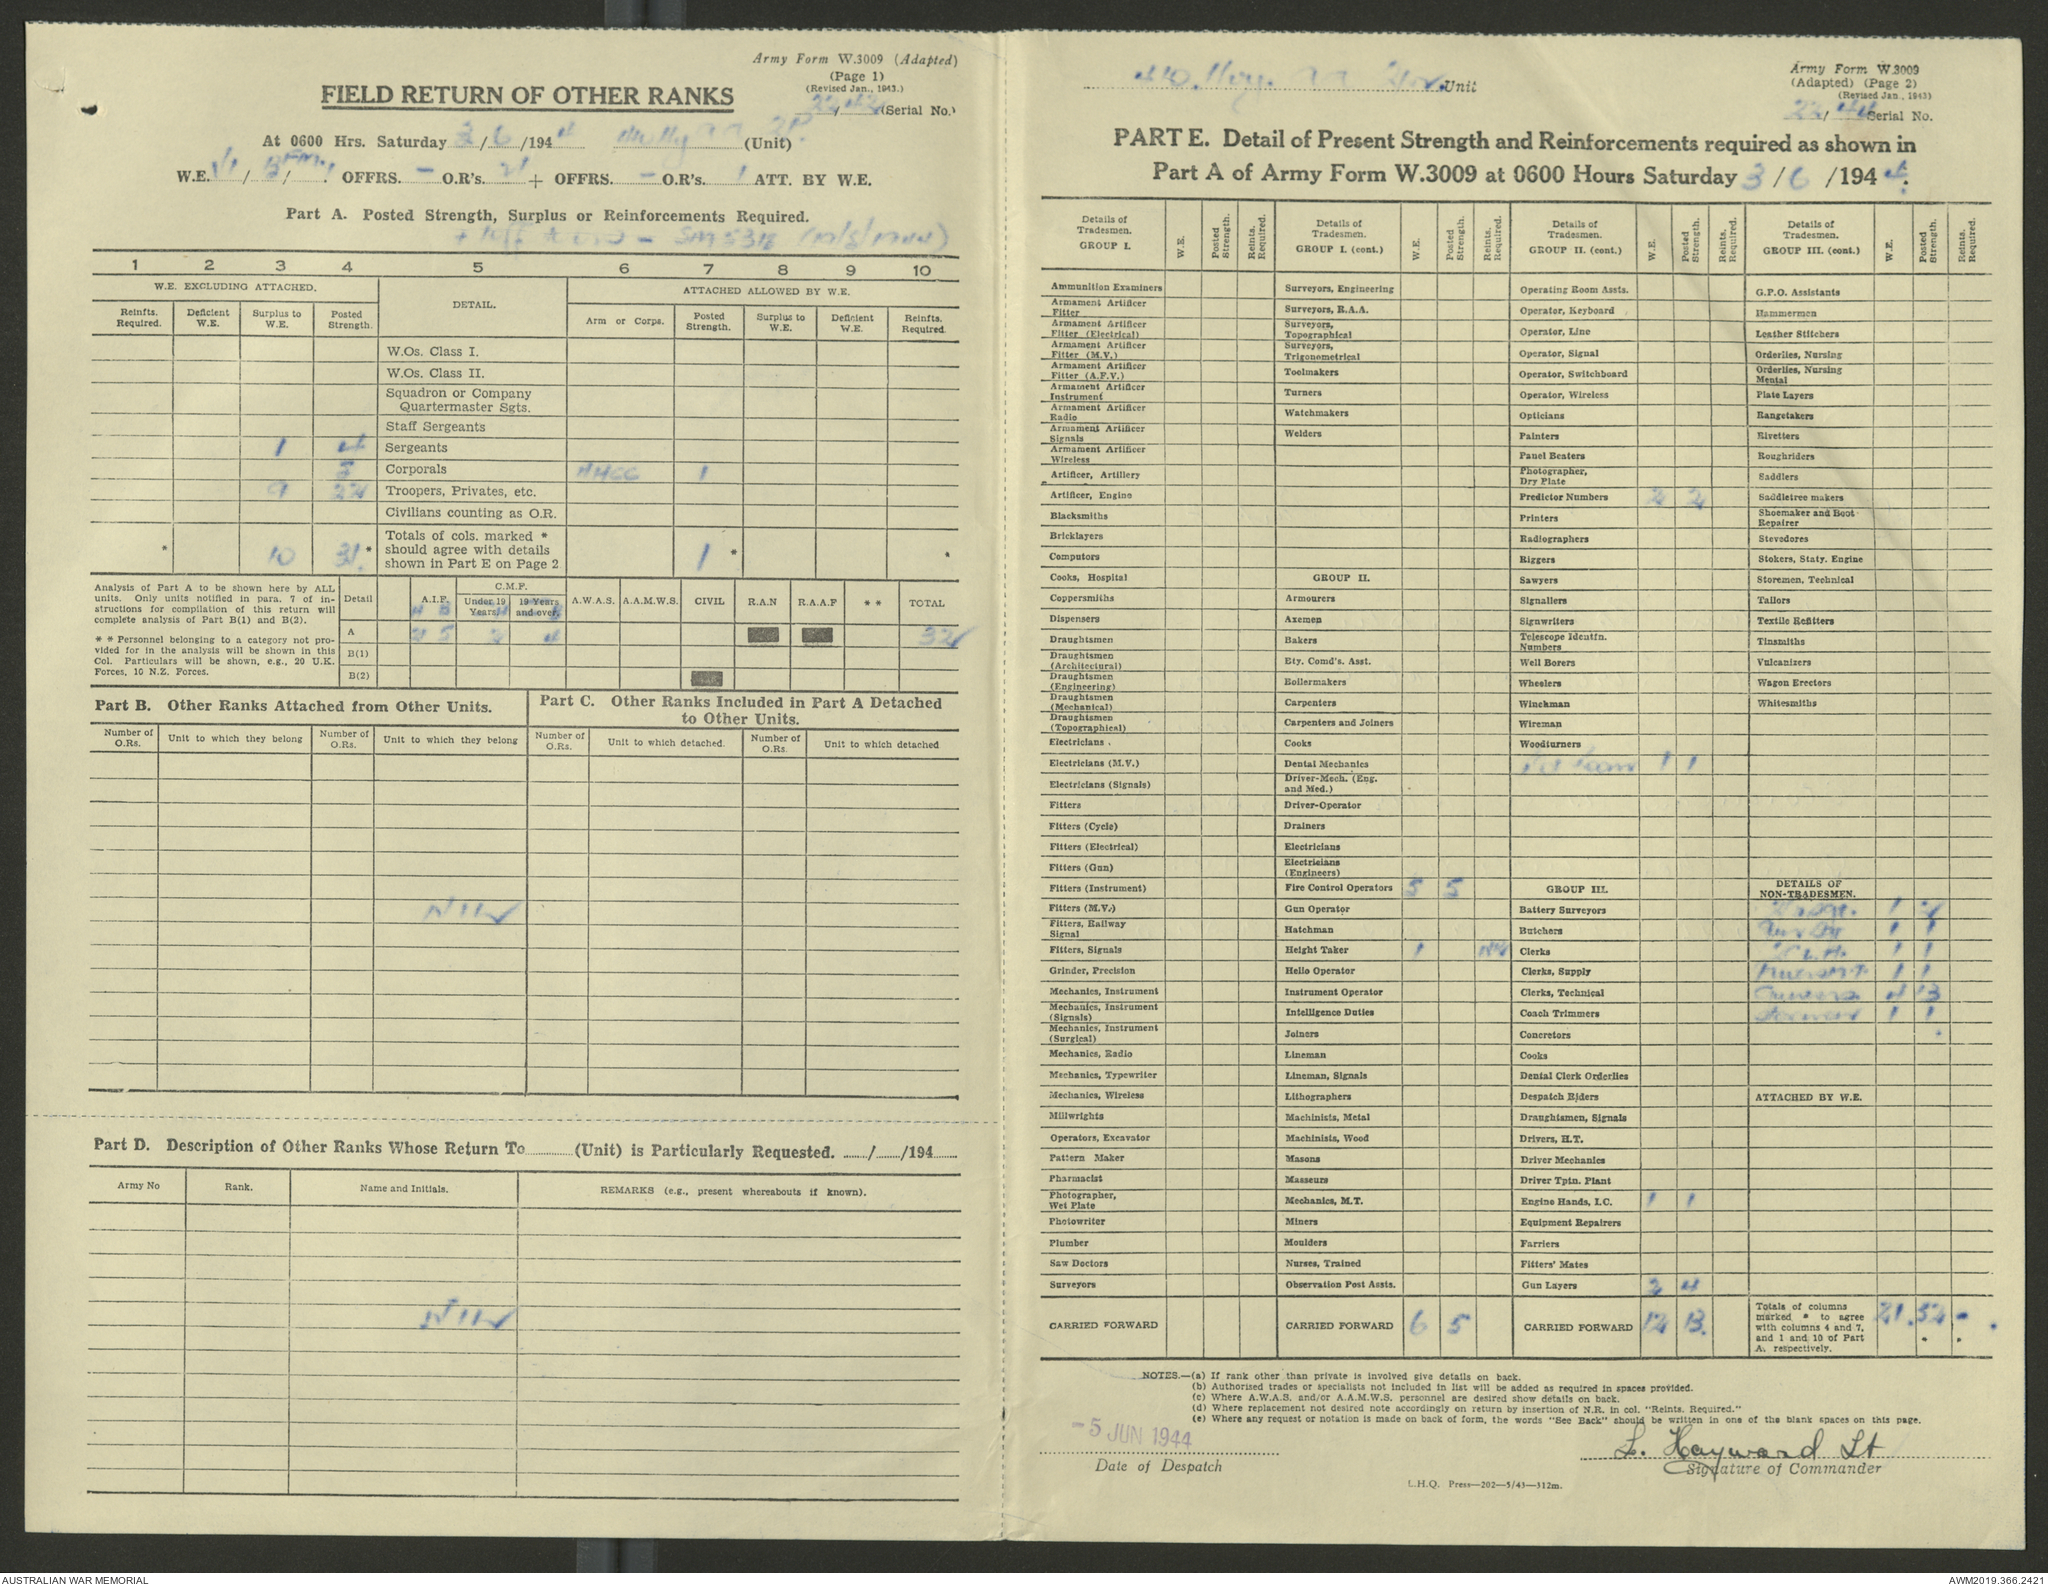 Army Form W.3009 (Adapted)
(Page 1)
(Revised Jan., 1943.)
FIELD RETURN OF OTHER RANKS
(Serial No.)
At 0600 Hrs. Saturday 3/6/1944 (Unit)
W.E. OFFRS. - O.R's. 21 + OFFRS. - O.R's. 1 ATT. BY W.E.
Part A. Posted Strength, Surplus or Reinforcements Required.
1 2 3 4 5 6 7 8 9 10
W.E. EXCLUDING ATTACHED.
DETAIL.
ATTACHED ALLOWED BY W.E.
Reinfts. Required.
Deficient W.E.
Surplus to W.E.
Posted Strength.
Arm or Corps.
Posted Strength.
Surplus to W.E.
Deficient W.E.
Reinfts. Required.
W.Os. Class I.
W.Os. Class II.
Squadron or Company
Quartermaster Sgts.
Staff Sergeants
1 4 Sergeants
5 Corporals AACC 1
9 22 Troopers, Privates, etc.
Civilians counting as O.R.
* 10 31 * Totals of cols. marked * 1 * *
should agree with details
shown in Part E on Page 2
Analysis of Part A to be shown here by ALL
units. Only units notified in para. 7 of in-
structions for compilation of this return will
complete analysis of Part B(1) and B(2).
* * Personnel belonging to a category not pro-
vided for in the analysis will be shown in this
Col. Particulars will be shown, e.g., 20 U.K.
Forces, 10 N.Z. Forces.
Detail
A.I.F.
C.M.F.
Under 19 Years.
19 Years and over.
A.W.A.S.
A.A.M.W.S.
CIVIL
R.A.N
R.A.A.F
* *
TOTAL
A 21 5 2 4 32
B(1)
B(2)
Part B. Other Ranks Attached from Other Units.
Part C. Other Ranks Included in Part A Detached
to Other Units.
Number of O.Rs.
Unit to which they belong
Number of O.Rs.
Unit to which they belong
Number of O.Rs.
Unit to which detached.
Number of O.Rs.
Unit to which detached
NIL
Part D. Description of Other Ranks Whose Return To (Unit) is Particularly Requested. / /194
Army No
Rank.
Name and Initials.
REMARKS (e.g., present whereabouts if known).
NIL
Unit
Army Form W.3009
(Adapted) (Page 2)
(Revised Jan., 1943)
22/44 Serial No.
PART E. Detail of Present Strength and Reinforcements required as shown in
Part A of Army Form W.3009 at 0600 Hours Saturday 3/6/1944.
Details of Tradesmen. GROUP I.
W.E.
Posted Strength.
Reints. Required.
Ammunition Examiners
Armament Artificer Fitter
Armament Artificer Fitter (Electrical)
Armament Artificer Fitter (M.V.)
Armament Artificer Fitter (A.F.V.)
Armament Artificer Instrument
Armament Artificer Radio
Armament Artificer Signals
Armament Artificer Wireless
Artificer, Artillery
Artificer, Engine
Blacksmiths
Bricklayers
Computors
Cooks, Hospital
Coppersmiths
Dispensers
Draughtsmen
Draughtsmen (Architectural)
Draughtsmen (Engineering)
Draughtsmen (Mechanical)
Draughtsmen (Topographical)
Electricians .
Electricians (M.V.)
Electricians (Signals)
Fitters
Fitters (Cycle)
Fitters (Electrical)
Fitters (Gun)
Fitters (Instrument)
Fitters (M.V.)
Fitters, Railway Signal
Fitters, Signals
Grinder, Precision
Mechanics, Instrument
Mechanics, Instrument (Signals)
Mechanics, Instrument (Surgical)
Mechanics, Radio
Mechanics, Typewriter
Mechanics, Wireless
Millwrights
Operators, Excavator
Pattern Maker
Pharmacist
Photographer, Wet Plate
Photowriter
Plumber
Saw Doctors
Surveyors
CARRIED FORWARD
Details of Tradesmen. GROUP I. (cont.)
W.E.
Posted Strength.
Reints. Required.
Surveyors, Engineering
Surveyors, R.A.A.
Surveyors, Topographical
Surveyors, Trigonometrical
Toolmakers
Turners
Watchmakers
Welders
GROUP II.
Armourers
Axemen
Bakers
Bty. Comd's. Asst.
Boilermakers
Carpenters
Carpenters and Joiners
Cooks
Dental Mechanics
Driver-Mech. (Eng. and Med.)
Driver-Operator
Drainers
Electricians
Electricians (Engineers)
Fire Control Operators 5 5
Gun Operator
Hatchman
Height Taker 1 NR
Hello Operator
Instrument Operator
Intelligence Duties
Joiners
Lineman
Lineman, Signals
Lithographers
Machinists, Metal
Machinists, Wood
Masons
Masseurs
Mechanics, M.T.
Miners
Moulders
Nurses, Trained
Observation Post Assts.
CARRIED FORWARD 6 5
Details of Tradesmen. GROUP II. (cont.)
W.E.
Posted Strength.
Reints. Required.
Operating Room Assts.
Operator, Keyboard
Operator, Line
Operator, Signal
Operator, Switchboard
Operator, Wireless
Opticians
Painters
Panel Beaters
Photographer, Dry Plate
Predictor Numbers 2 2
Printers
Radiographers
Riggers
Sawyers
Signallers
Signwriters
Telescope Identfn. Numbers
Well Borers
Wheelers
Winchman
Wireman
Woodturners
1 1
GROUP III.
Battery Surveyors
Butchers
Clerks
Clerks, Supply
Clerks, Technical
Coach Trimmers
Concretors
Cooks
Dental Clerk Orderlies
Despatch Riders
Draughtsmen, Signals
Drivers, H.T.
Driver Mechanics
Driver Tptn. Plant
Engine Hands, I.C. 1 1
Equipment Repairers
Farriers
Fitters' Mates
Gun Layers 2 4
CARRIED FORWARD 12 13
Details of Tradesmen. GROUP III. (cont.)
W.E.
Posted Strength.
Reints. Required.
G.P.O. Assistants
Hammermen
Leather Stitchers
Orderlies, Nursing
Orderlies, Nursing Mental
Plate Layers
Rangetakers
Rivetters
Roughriders
Saddlers
Saddletree makers
Shoemaker and Boot Repairer
Stevedores
Stokers, Staty. Engine
Storemen, Technical
Tailors
Textile Refitters
Tinsmiths
Vulcanizers
Wagon Erectors
Whitesmiths
DETAILS OF NON-TRADESMEN.
1 2
1 1
1 1
1 1
Gunners 4 13
Storeman 1 1
ATTACHED BY W.E.
Totals of columns marked * to agree with columns 4 and 7, and 1 and 10 of Part A. respectively. 21 32 -
NOTES.—(a) If rank other than private is involved give details on back.
(b) Authorised trades or specialists not included in list will be added as required in spaces provided.
(c) Where A.W.A.S. and/or A.A.M.W.S. personnel are desired show details on back.
(d) Where replacement not desired note accordingly on return by insertion of N.R. in col. "Reints. Required."
(e) Where any request or notation is made on back of form, the words "See Back" should be written in one of the blank spaces on this page.
-5 JUN 1944
Date of Despatch
L. Hayward Lt
Signature of Commander
L.H.Q. Press—202—5/43—312m.
AUSTRALIAN WAR MEMORIAL
AWM2019.366.2421